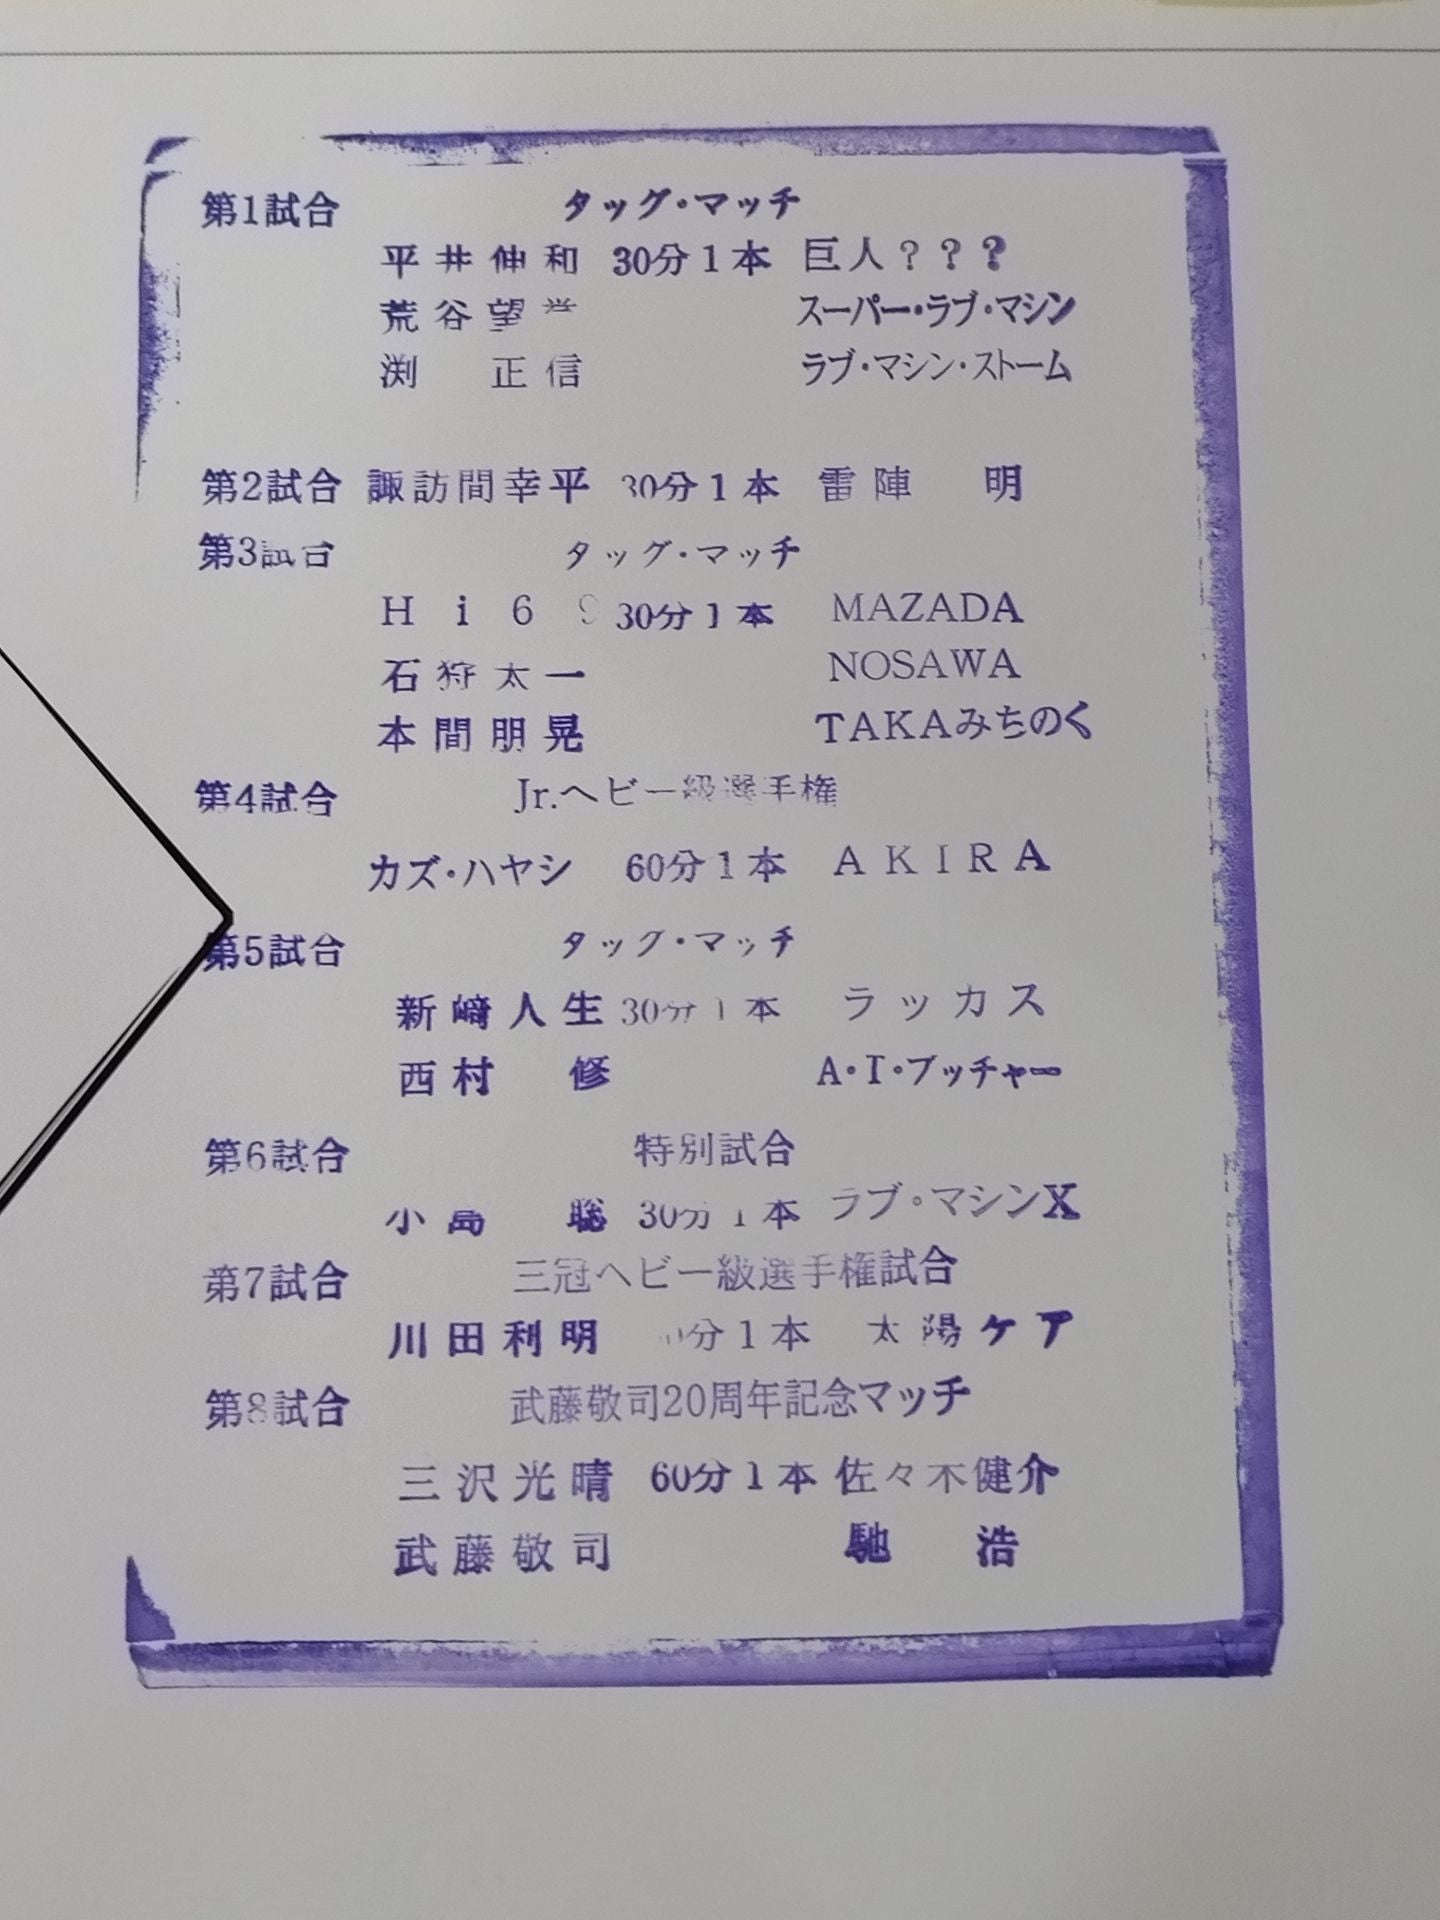 第1試合 タッグ・マッチ
平井伸和 30分1本 巨人???
荒谷望 スーパー・ラブ・マシン
渕 正信 ラブ・マシン・ストーム
第2試合 諏訪間幸平 30分1本 雷陣 明
第3試合 タッグ・マッチ
Hi69 30分1本 MAZADA
石狩太一 NOSAWA
本間朋晃 TAKAみちのく
第4試合 Jr.ヘビー級選手権
カズ・ハヤシ 60分1本 AKIRA
第5試合 タッグ・マッチ
新崎人生 30分1本 ラッカス
西村 修 A・T・ブッチャー
第6試合 特別試合
小島 聡 30分1本 ラブ・マシンX
第7試合 三冠ヘビー級選手権試合
川田利明 分1本 太陽ケア
第8試合 武藤敬司20周年記念マッチ
三沢光晴 60分1本 佐々木健介
武藤敬司 馳 浩